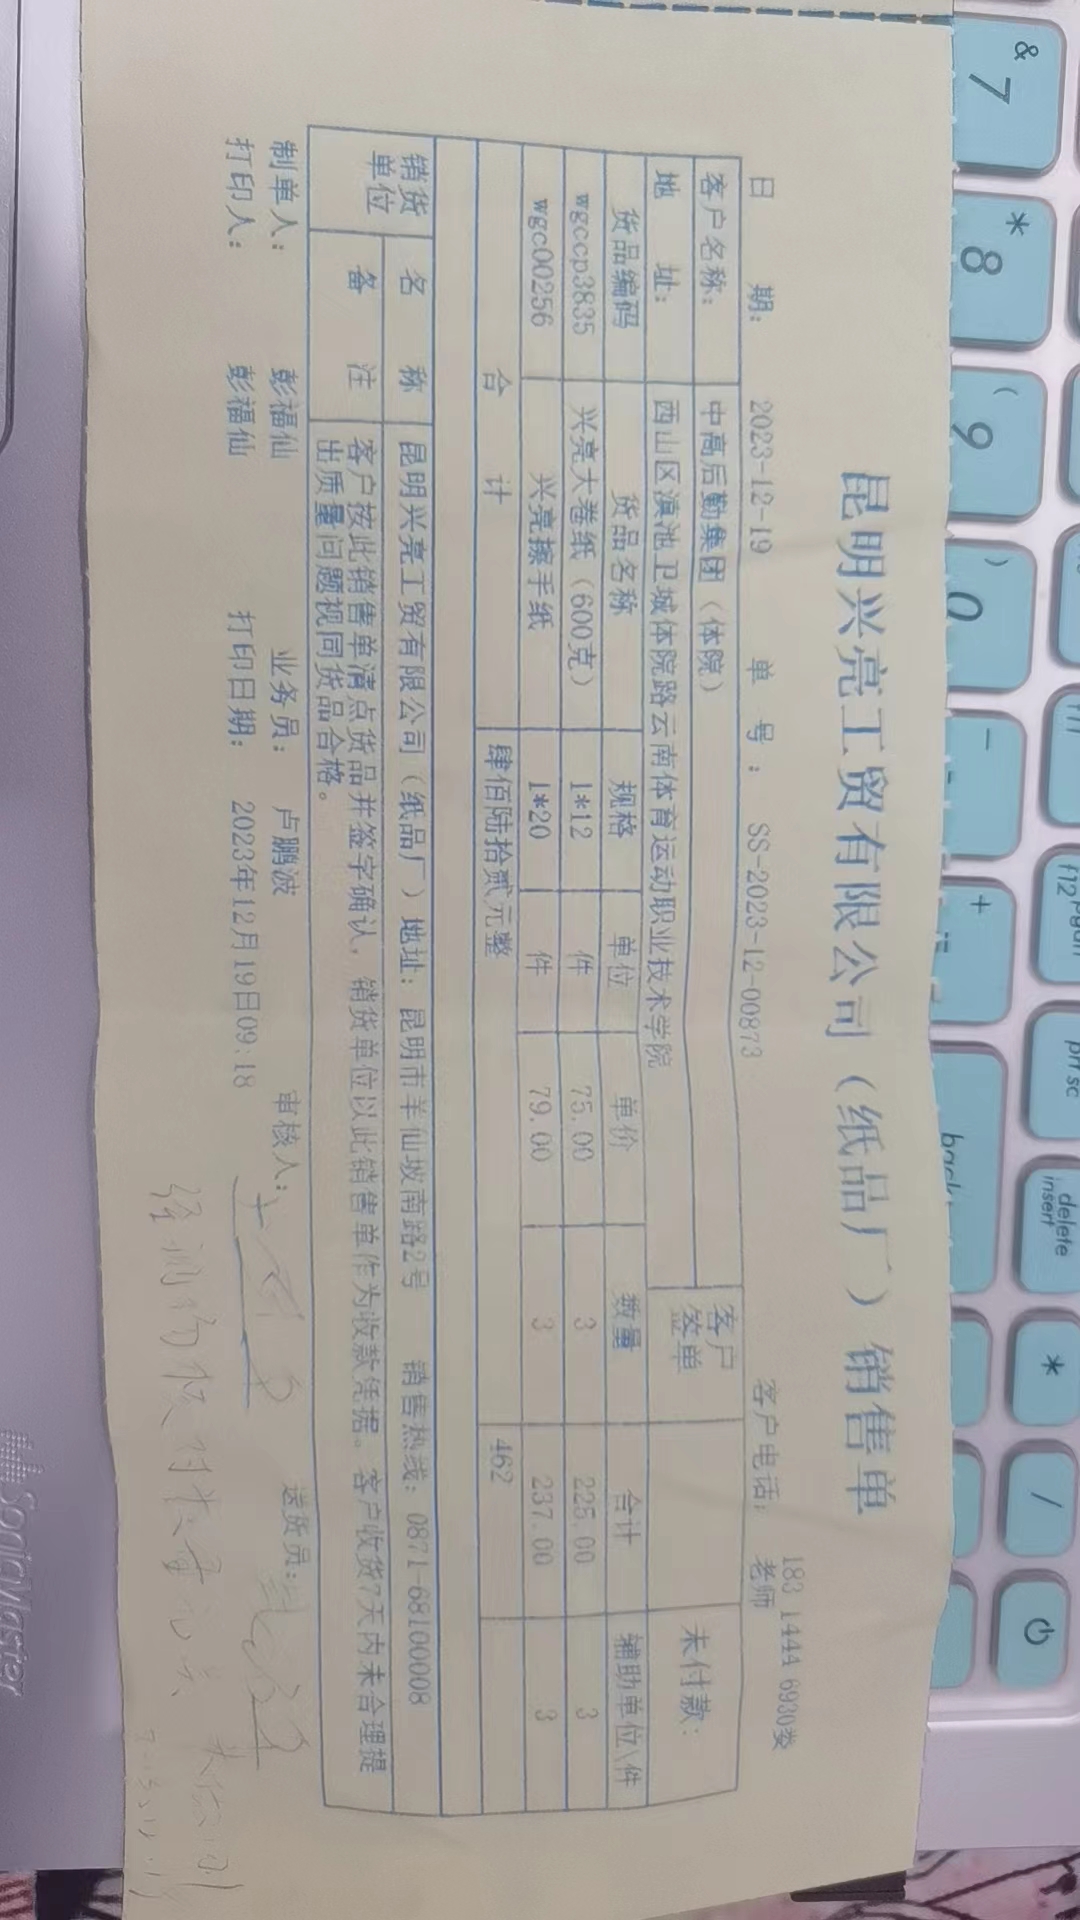 昆明兴亮工贸有限公司（纸品厂）销售单
日 期： 2023-12-19 单 号： SS-2023-12-00873 客户电话： 183 1444 6930娄老师
客户名称： 中高后勤集团（体院） 客户签单 未付款：
地 址： 西山区滇池卫城体院路云南体育运动职业技术学院
货品编码 货品名称 规格 单位 单价 数量 合计 辅助单位\件
wgccp3835 兴亮大卷纸（600克） 1*12 件 75.00 3 225.00 3
wgc00256 兴亮擦手纸 1*20 件 79.00 3 237.00 3
合 计 肆佰陆拾贰元整 462
销货单位 名 称 昆明兴亮工贸有限公司（纸品厂）地址：昆明市羊仙坡南路2号 销售热线：0871-68100008
备 注 客户按此销售单清点货品并签字确认，销货单位以此销售单作为收款凭据。客户收货7天内未合理提
出质量问题视同货品合格。
制单人： 彭福仙 业务员： 卢鹏波 审核人： 送货员：
打印人： 彭福仙 打印日期： 2023年12月19日09:18
& 7
* 8
( 9
) 0
-
+ =
f11
f12
prt sc
delete
insert
*
/
SonicMaster